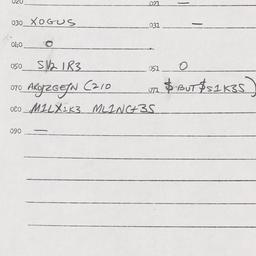 020 021 —
030 XOGUS 031 —
040 o
050 S1/2 1R3 051 O
070 072 $-BUT $S1K3S)
080 M1LX1K3 ML1NG+3S
090 —